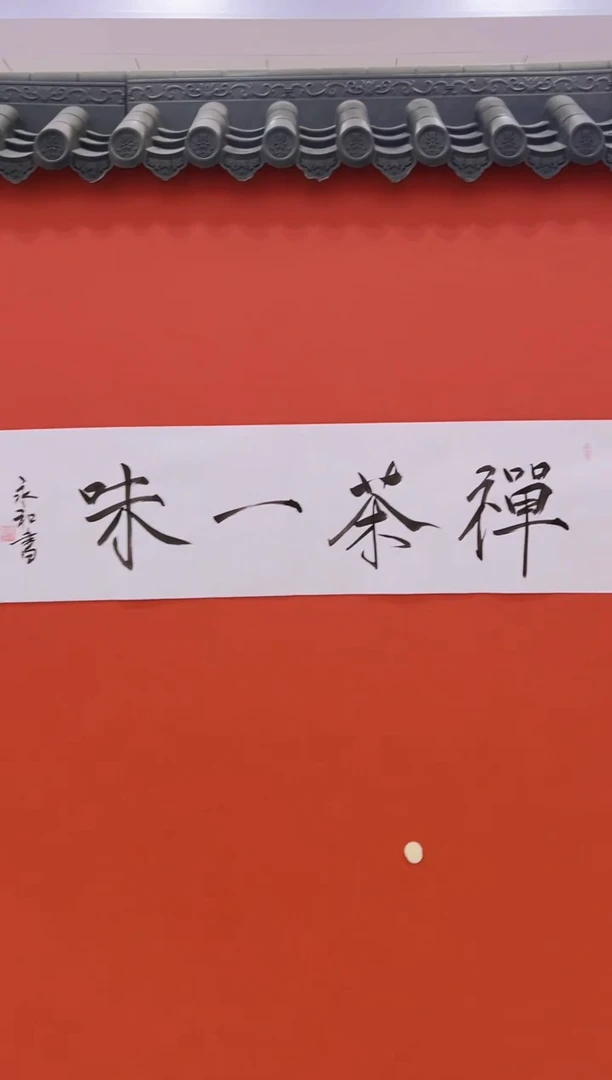 禪茶一味
永和書